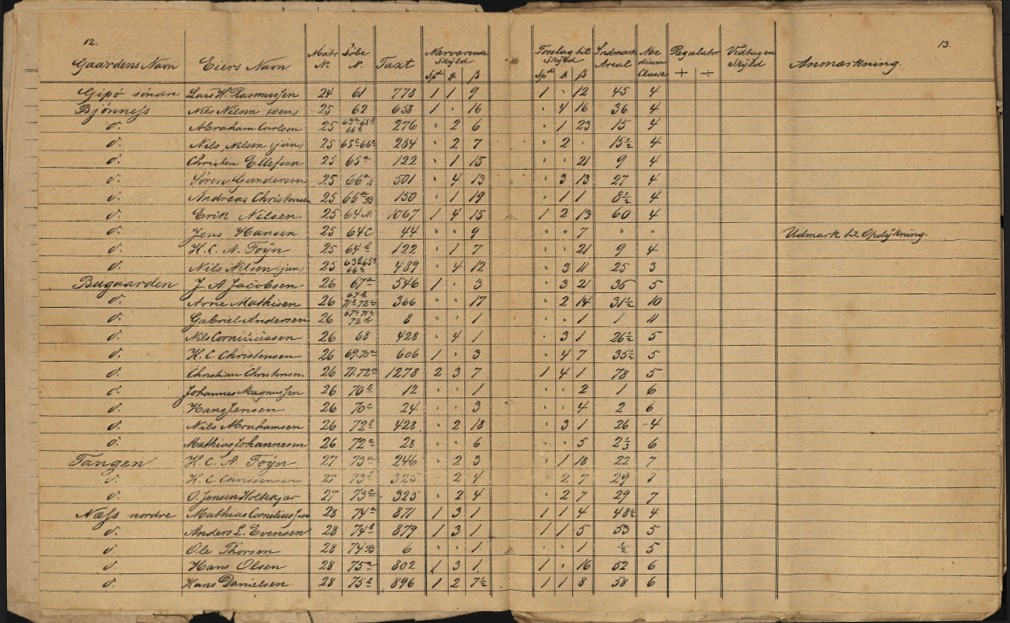 12. 13.
Gaardens Navn Eiers Navn Matr N. Löbe N. Taxt Nærværende Skyld Forslag til Skyld Indmark Areal Medium Classe Regulator Vedtagen Skyld Anmærkning.
Spd ß Spd ß + ÷
Gipö söndre Lars W. Rasmussen 24 61 778 1 1 9 1 · 12 45 4
Bjönness Nils Nilsen (sen) 25 62 658 1 · 16 · 4 16 36 4
d°. Abraham Carlsen 25 276 · 2 6 · 1 23 15 4
d°. Nils Nilsen (jun) 25 284 · 2 7 · 2 · 15½ 4
d°. Christen Ellefsen 25 65a 122 · 1 15 · · 21 9 4
d°. Sören Gundersen 25 501 · 4 13 · 3 13 27 4
d°. Andreas Christensen 25 150 · 1 19 · 1 1 8½ 4
d°. Erik Nilsen 25 1067 1 4 15 1 2 13 60 4
d°. Jens Hansen 25 64c 44 · · 9 · · 7 · · Udmark til Opdÿkning.
d°. H. C. A. Foÿn 25 64b 122 · 1 7 · · 21 9 4
d°. Nils Nilsen (jun) 25 489 · 4 12 · 3 11 25 3
Bugaarden J. A. Jacobsen 26 67a 546 1 · 3 · 3 21 35 5
d°. Arne Mathisen 26 366 · · 17 · 2 14 31½ 10
d°. Gabriel Andersen 26 8 · · 1 · · 1 1 11
d°. Nils Corniliussen 26 68 428 · 4 1 · 3 1 26½ 5
d°. H. C. Christensen 26 69.70a 606 1 · 3 · 4 7 35½ 5
d°. Christian Christensen 26 71.72a 1278 2 3 7 1 4 1 78 5
d°. Johannes Magnussen 26 70b 12 · · 1 · · 2 1 6
d°. Hans Jensen 26 70c 24 · · 3 · · 4 2 6
d°. Nils Abrahamsen 26 72b 428 · 2 18 · 3 1 26 4
d°. Mathias Johannesen 26 72c 28 · · 6 · · 5 2⅓ 6
Tangen H. C. A. Foÿn 27 73a 246 · 2 3 · 1 18 22 7
d°. H. C. Christensen 27 73b 325 · 2 4 · 2 7 29 7
d°. O. Jensen Holtekjær 27 73c 325 · 2 4 · 2 7 29 7
Næss nordre Mathias Cornelius sen 28 74a 871 1 3 1 1 1 4 48½ 4
d°. Anders L. Evensen 28 74b 879 1 3 1 1 1 5 53 5
d°. Ole Thorsen 28 6 · · 1 · · 1 ½ 5
d°. Hans Olsen 28 75a 802 1 3 1 1 · 16 52 6
d°. Hans Danielsen 28 75b 896 1 2 7½ 1 1 8 58 6